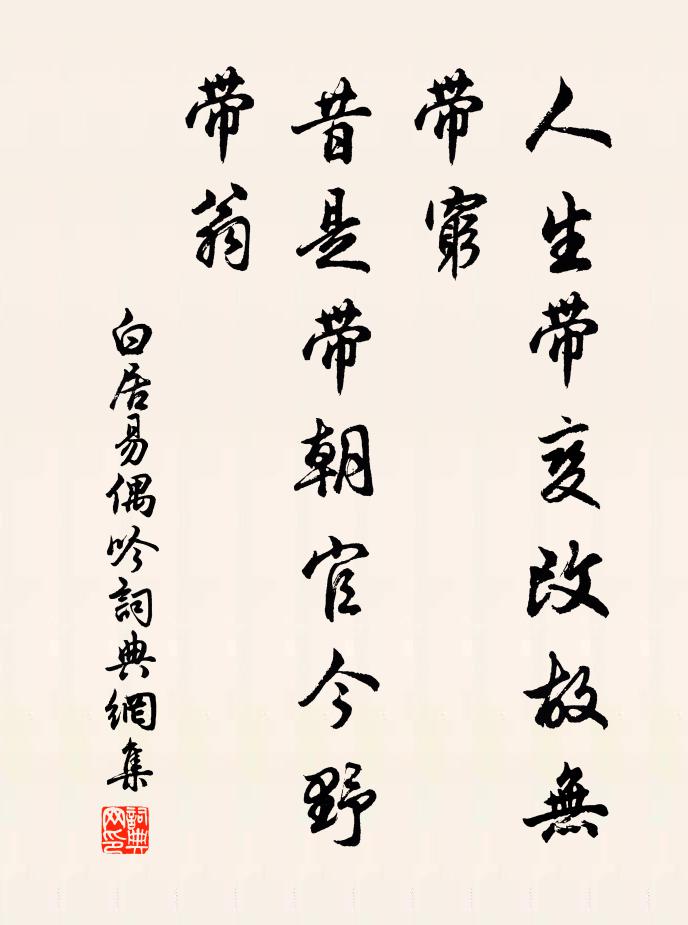 人生带变改故無
带窮
昔是带朝官今野
带翁
白居易偶吟詞典網集
詞典网印